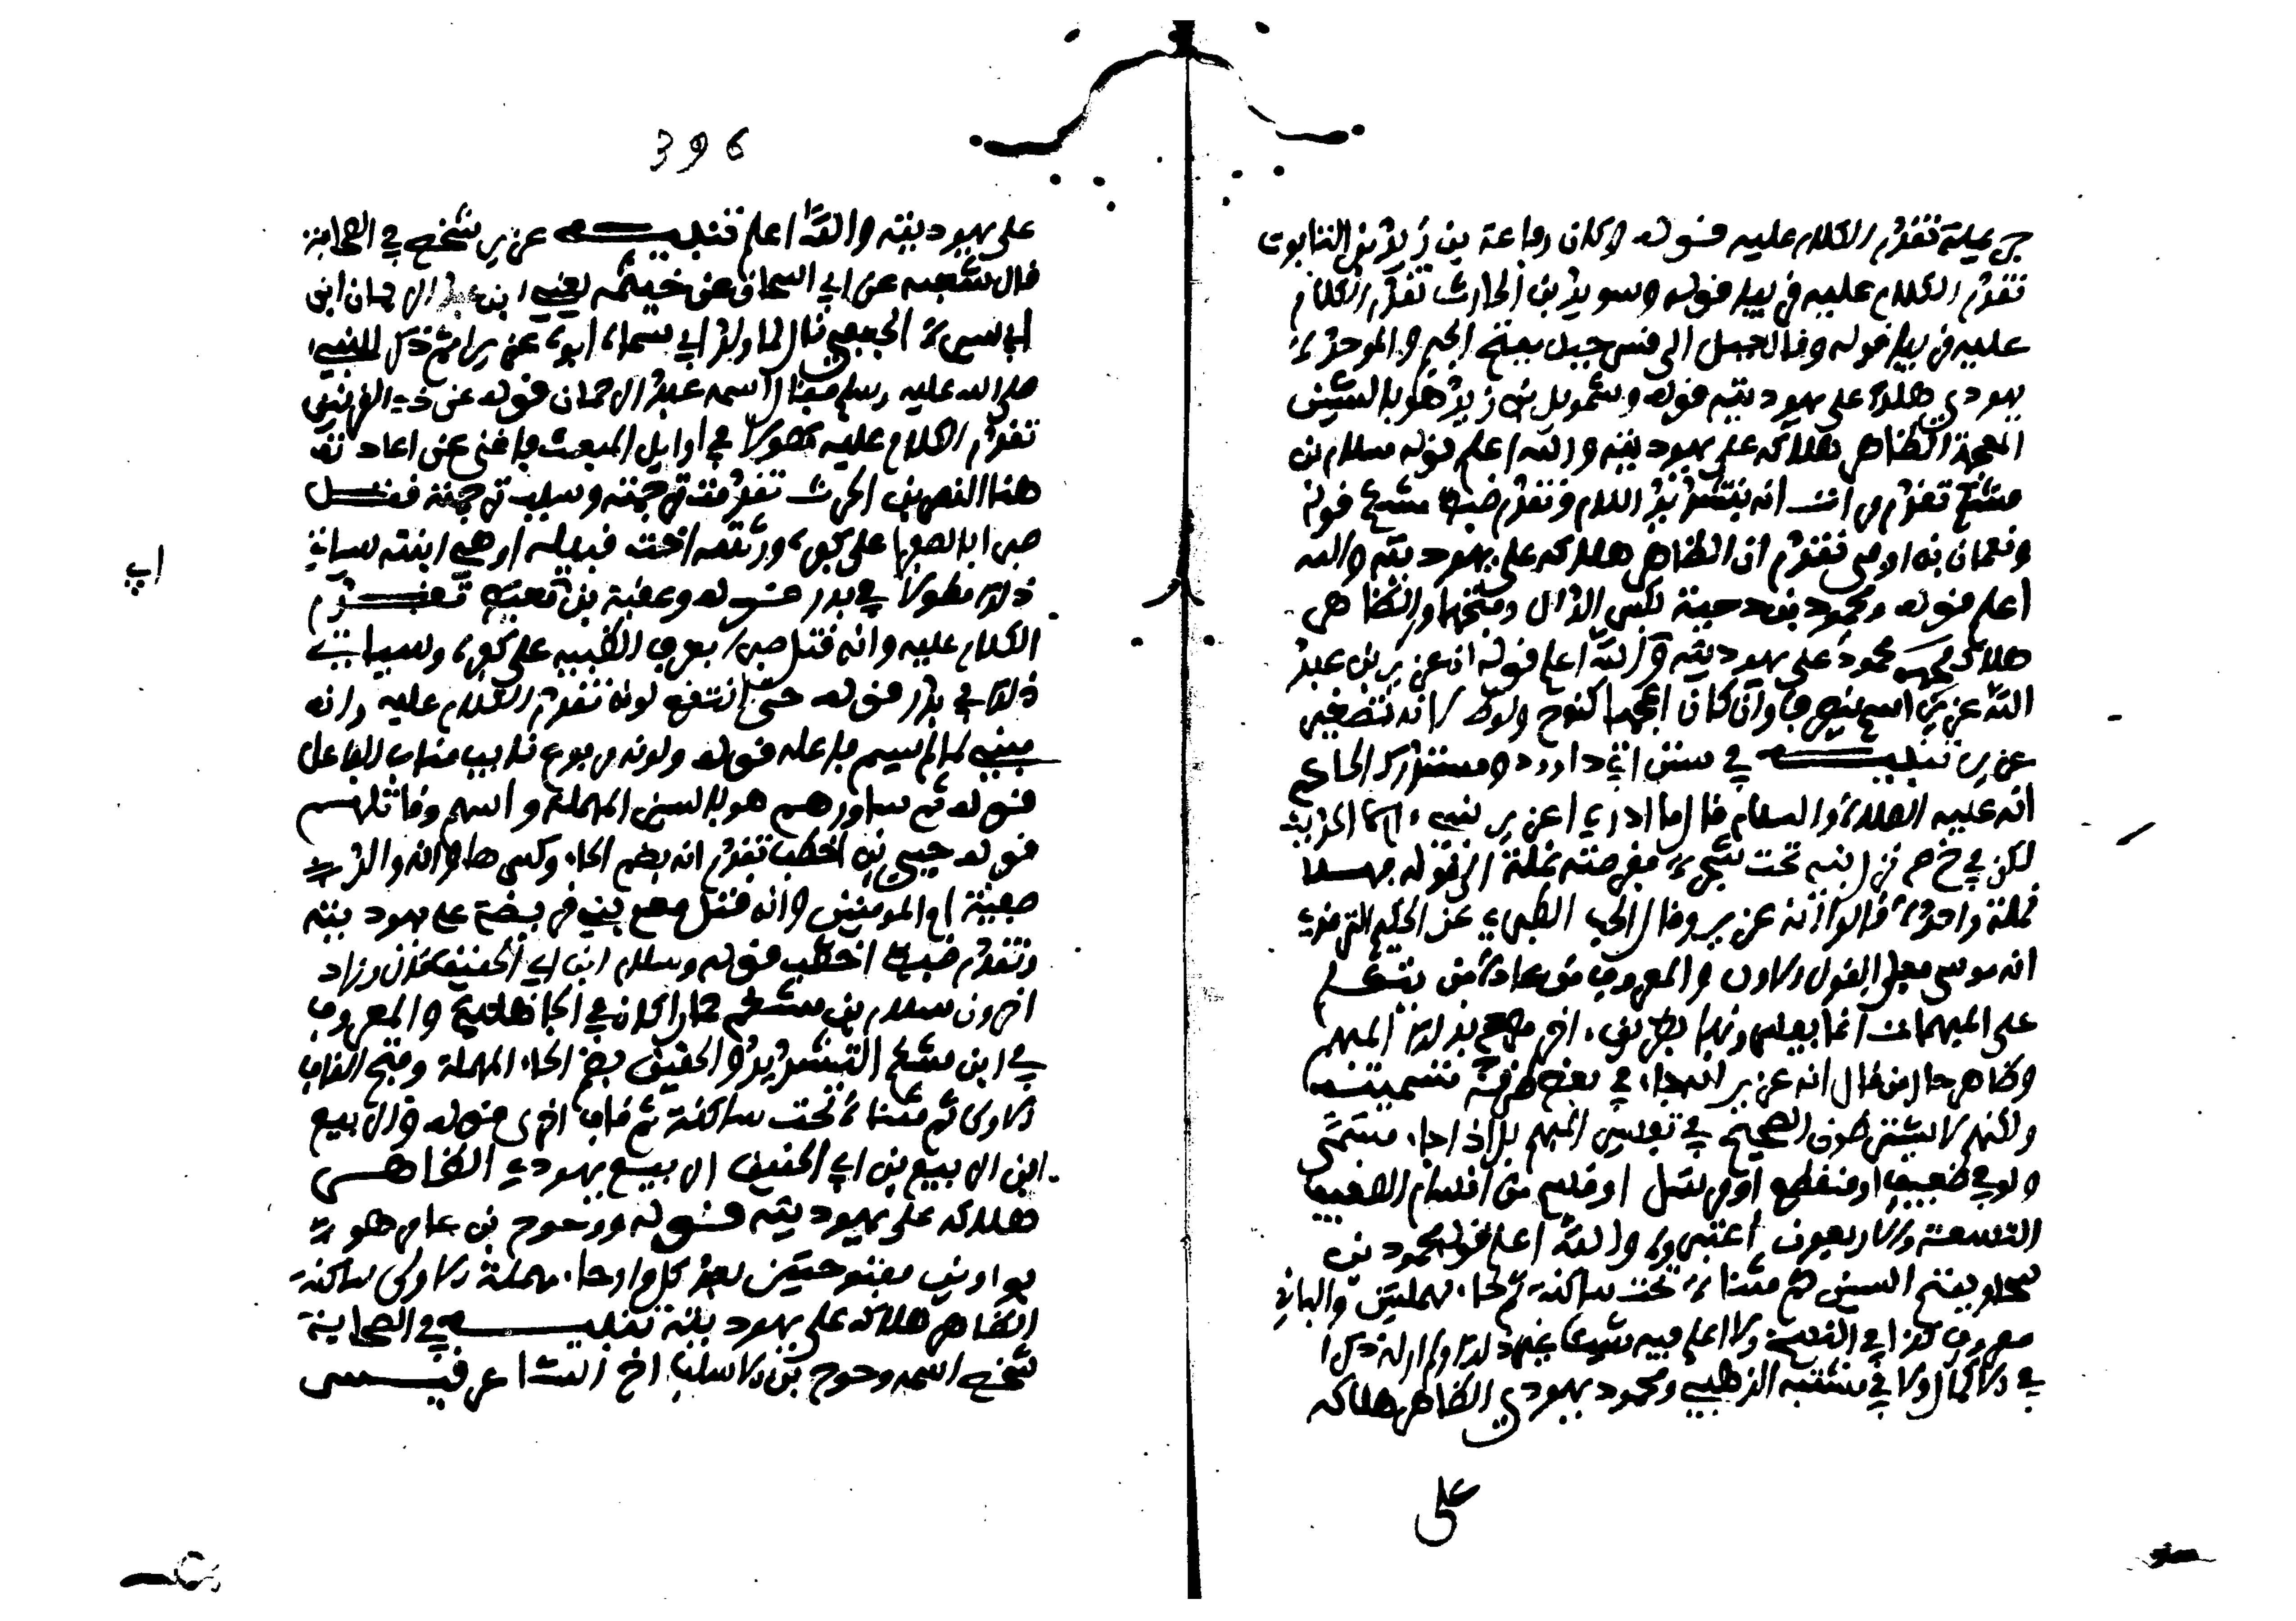 جريملة تقدم الكلام عليه قوله وكان رفاعة بن زيد بن التابوت
تقدم الكلام عليه في بيار قوله وسويد بن الحارث تقدم الكلام
عليه في بيار قوله وقال جبل الى قس جبل بفتح الجيم والموحدة
يهودي هلك على يهوديته قوله وشمويل بن زيد هو بالشين
المعجمة الظاهر هلاكه على يهوديته والله اعلم قوله سلام بن
مشكم تقدم مرات انه بتشديد اللام وتقدم ضبط مشكم قوله
ونعمان بن اوفى تقدم ان الظاهر هلاكه على يهوديته والله
اعلم قوله ومحمود بن دحية بكسر الدال وفتحها والظاهر
هلاك محمود على يهوديته والله اعلم قوله ان عزير بن عبد
الله عزير اسم ينصرف وان كان اعجميا كنوح ولوط لانه تصغير
عزير تنبيه في سنن ابي داوود ومستدرك الحاكم
انه عليه الصلاة والسلام قال ما ادري اعزير نبي ام لا الحديث
لكن في خ م نزل نبي تحت شجرة فقرصته نملة الى قوله فهلا
نملة واحدة قالوا انه عزير وقال المحب الطبري عن الحكيم الترمذي
انه موسى فعلى القول الاول والمعروف من عادة من يتكلم
على المبهمات انما يفسرونها بطريق اخر مصرح بذلك المبهم
وظاهر حال من قال انه عزير انه جاء في بعض طرقه تسميته
ولكنهم لا يشترطون الصحيح في تفسير المبهم بل اذا جاء مسمى
ولو في ضعيف او منقطع او مرسل او قسم من اقسام الضعيف
التسعة والاربعون اعتبروه والله اعلم قوله محمود بن
سيحان بفتح السين ثم مثناة تحت ساكنة ثم حاء مهملتين والباقي
معروف كذا في النسخة ولا اعلم فيه شيئا غير ذلك ولم ار له ذكرا
في الاكمال ولا في مشتبه الذهبي ومحمود يهودي الظاهر هلاكه
على
396
على يهوديته والله اعلم تنبيه عزير شخص في الصحابة
قال شعبة عن ابي اسحاق عن خيثمة يعني ابن عبد الرحمان ابن
ابي سبرة الجعفي قال لما ولد ابي سماه ابوه عزيرا ثم ذكر للنبي
صلى الله عليه وسلم فقال اسمه عبد الرحمان قوله عن ذي القرنين
تقدم الكلام عليه مطولا في اوايل المبعث فاغنى عن اعادته
هنا النضر بن الحرث تقدمت ترجمته وسلب ترجمته قتل
صبرا بالصفراء على كفره ورثته اخته قبيلة او هي ابنته سياتي
ذلك مطولا في بدر قوله وعقبة بن ابي معيط تقدم
الكلام عليه وانه قتل صبرا بعرق الظبية على كفره وسياتي
ذلك في بدر قوله حتى انتقع لونه تقدم الكلام عليه وانه
مبني لما لم يسم فاعله قوله ولونه مرفوع نايب مناب الفاعل
قوله ثم ساورهم هو بالسين المهملة واسهم وقاتلهم
قوله حيي بن اخطب تقدم انه بضم الحاء وكسرها وانه والد
صفية ام المومنين وانه قتل مع بني قريضة على يهوديته
وتقدم ضبط اخطب قوله وسلام ابن ابي الحقيق مخفف وزاد
اخرون سلام بن مشكم خمارا كان في الجاهلية والمعروف
في ابن مشكم التشديد والحقيق بضم الحاء المهملة وفتح القاف
الاولى ثم مثناة تحت ساكنة ثم قاف اخرى قوله والربيع
ابن الربيع بن ابي الحقيق الربيع يهودي الظاهر
هلاكه على يهوديته قوله ووحوح بن عامر هو
بواوين مفتوحتين بعد كل واو حاء مهملة الاولى ساكنة
الظاهر هلاكه على يهوديته تنبيه في الصحابة
شخص اسمه وحوح بن الاسلت اخ الشاعر قيس
اب